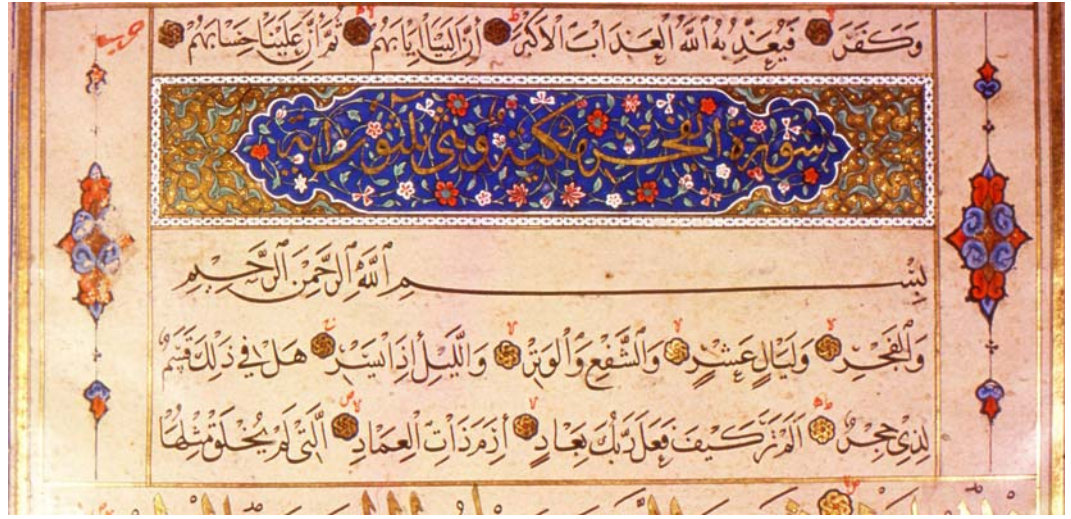 وَكَفَرَ فَيُعَذِّبُهُ اللَّهُ الْعَذَابَ الْأَكْبَرَ إِنَّ إِلَيْنَا إِيَابَهُمْ ثُمَّ إِنَّ عَلَيْنَا حِسَابَهُمْ
سورة الفجر مكية وهي ثلثون آية
بِسْمِ اللَّهِ الرَّحْمَنِ الرَّحِيمِ
وَالْفَجْرِ وَلَيَالٍ عَشْرٍ وَالشَّفْعِ وَالْوَتْرِ وَاللَّيْلِ إِذَا يَسْرِ هَلْ فِي ذَلِكَ قَسَمٌ
لِذِي حِجْرٍ أَلَمْ تَرَ كَيْفَ فَعَلَ رَبُّكَ بِعَادٍ إِرَمَ ذَاتِ الْعِمَادِ الَّتِي لَمْ يُخْلَقْ مِثْلُهَا